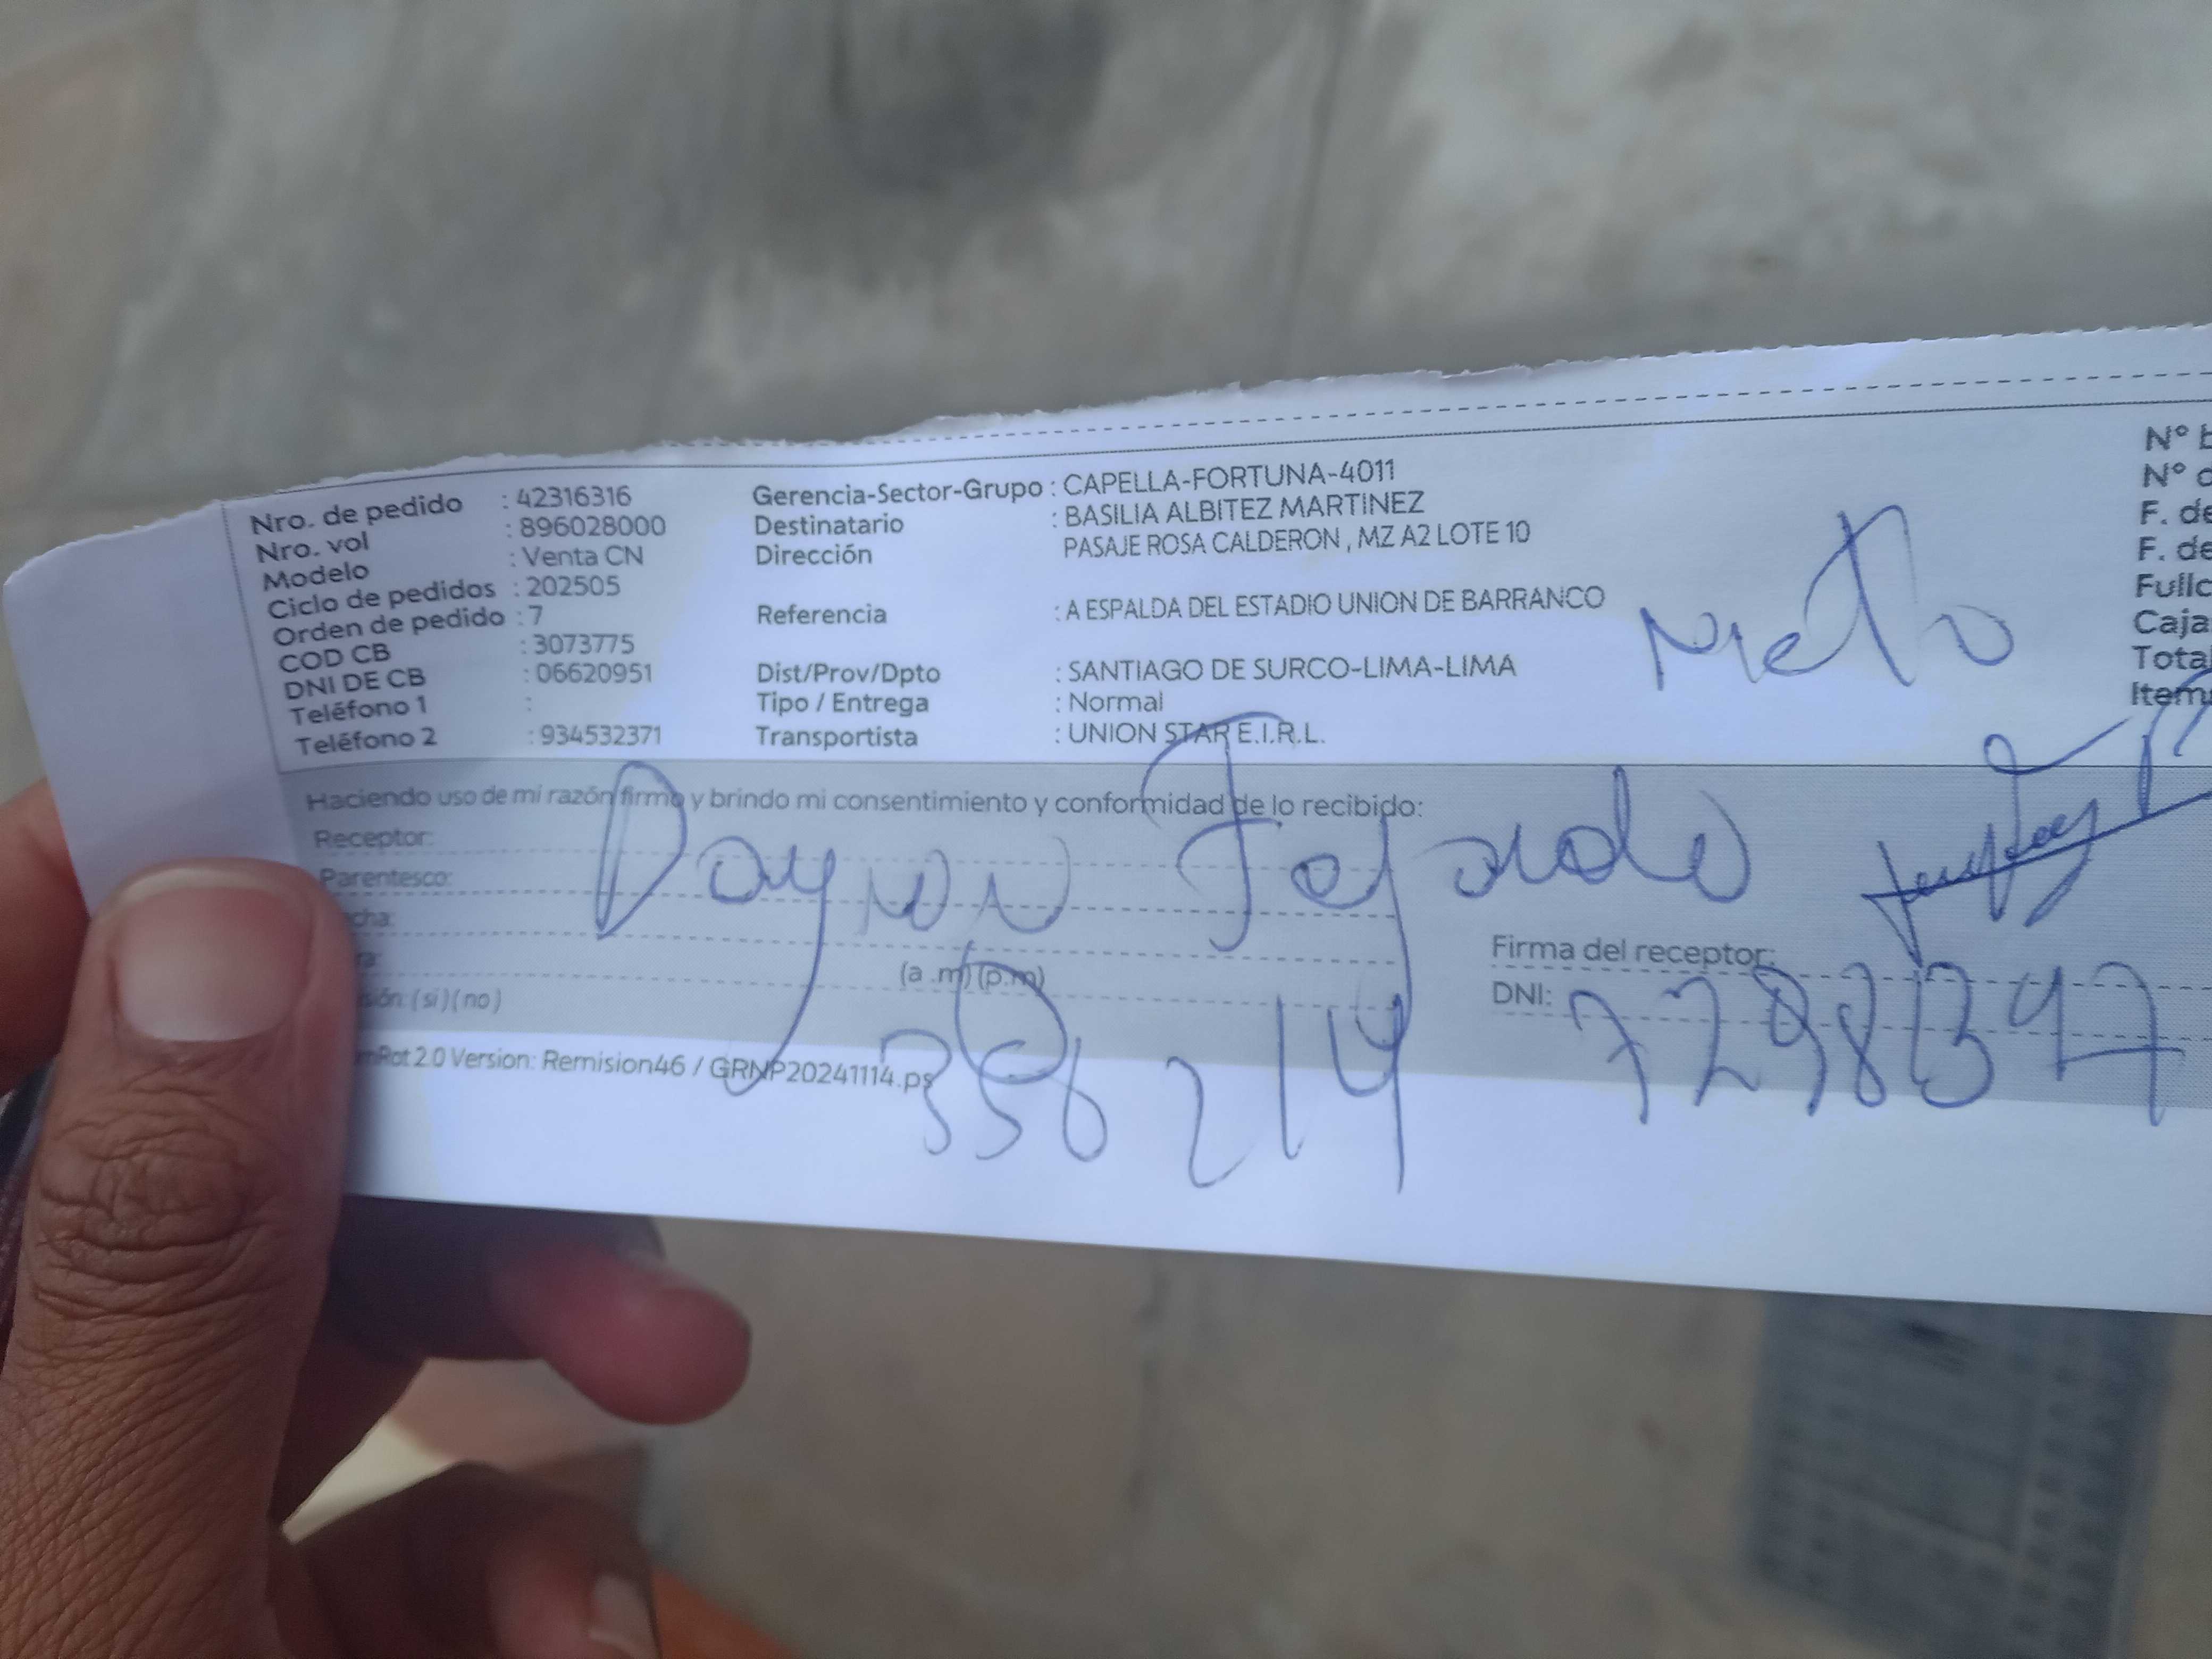 Nro. de pedido : 42316316
Nro. vol : 896028000
Modelo : Venta CN
Ciclo de pedidos : 202505
Orden de pedido : 7
COD CB : 3073775
DNI DE CB : 06620951
Teléfono 1 :
Teléfono 2 : 934532371
Gerencia-Sector-Grupo : CAPELLA-FORTUNA-4011
Destinatario : BASILIA ALBITEZ MARTINEZ
Dirección PASAJE ROSA CALDERON , MZ A2 LOTE 10
Referencia : A ESPALDA DEL ESTADIO UNION DE BARRANCO
Dist/Prov/Dpto : SANTIAGO DE SURCO-LIMA-LIMA
Tipo / Entrega : Normal
Transportista : UNION STAR E.I.R.L.
Nieto
N°
N°
F. de
F. de
Caja
Total
Item
Haciendo uso de mi razón firmo y brindo mi consentimiento y conformidad de lo recibido:
Receptor:
Dayron Fajardo
Parentesco:
(a .m) (p.m)
( si ) ( no )
Firma del receptor:
DNI:
2.0 Version: Remision46 / GRNP20241114.ps